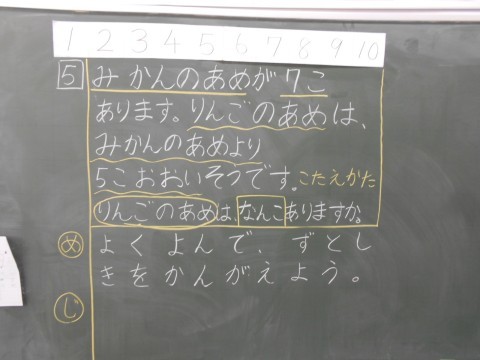 1 2 3 4 5 6 7 8 9 10
5 みかんのあめが7こ
あります。りんごのあめは、
みかんのあめより
5こおおいそうです。こたえかた
りんごのあめは、なんこありますか。
め よくよんで、ずとし
きをかんがえよう。
じ